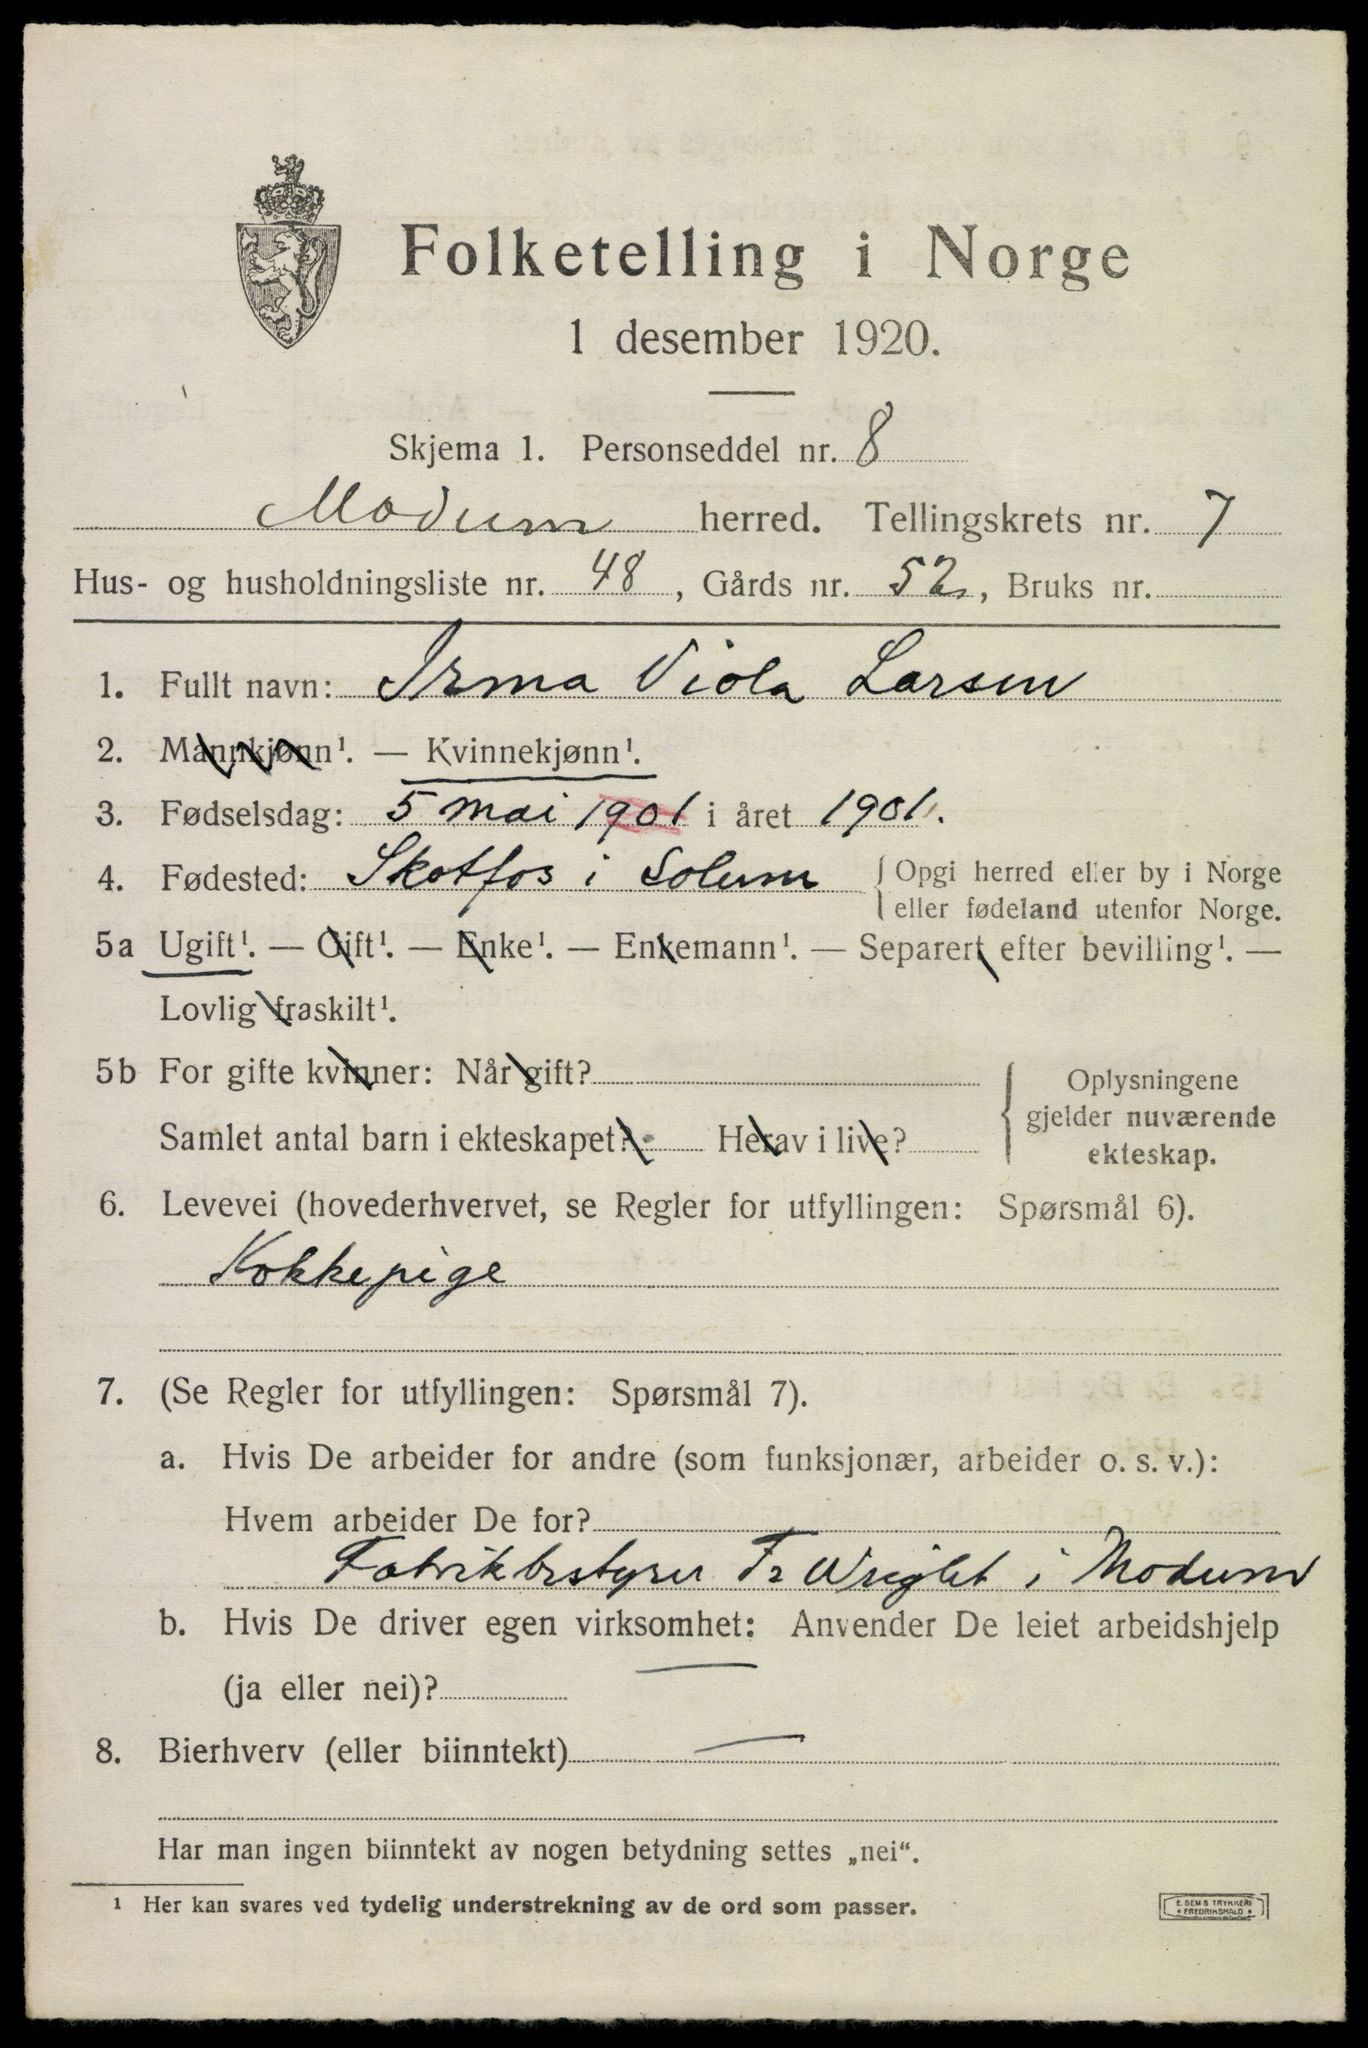 Folketelling i Norge
1 desember 1920.
Skjema 1. Personseddel nr. 8
Modum herred. Tellingskrets nr. 7
Hus- og husholdningsliste nr. 48, Gårds nr. 52, Bruks nr.
1. Fullt navn: Irma Viola Larsen
2. Mannkjønn¹. — Kvinnekjønn¹.
3. Fødselsdag: 5 mai 1901 i året 1901.
4. Fødested: Skotfos i Solum { Opgi herred eller by i Norge
eller fødeland utenfor Norge.
5a Ugift¹. — Gift¹. — Enke¹. — Enkemann¹. — Separert efter bevilling¹. —
Lovlig fraskilt¹.
5b For gifte kvinner: Når gift?
Samlet antal barn i ekteskapet? Herav i live?
{ Oplysningene
gjelder nuværende
ekteskap.
6. Levevei (hovederhvervet, se Regler for utfyllingen: Spørsmål 6).
Kokkepige
7. (Se Regler for utfyllingen: Spørsmål 7).
a. Hvis De arbeider for andre (som funksjonær, arbeider o. s. v.):
Hvem arbeider De for?
Fabrikbestyrer Fr Wright i Modum
b. Hvis De driver egen virksomhet: Anvender De leiet arbeidshjelp
(ja eller nei)? —
8. Bierhverv (eller biinntekt) —
Har man ingen biinntekt av nogen betydning settes „nei“.
¹ Her kan svares ved tydelig understrekning av de ord som passer.
E. SEMS TRYKKERI
• FREDRIKSHALD •